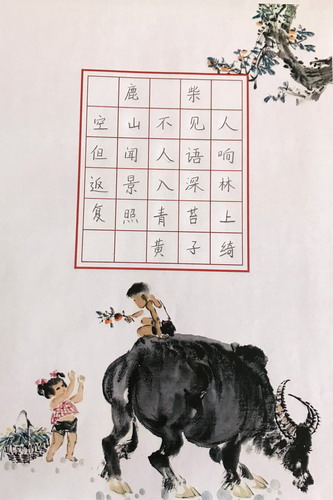 鹿柴
空山不见人
但闻人语响
返景入深林
复照青苔上
黄子绮